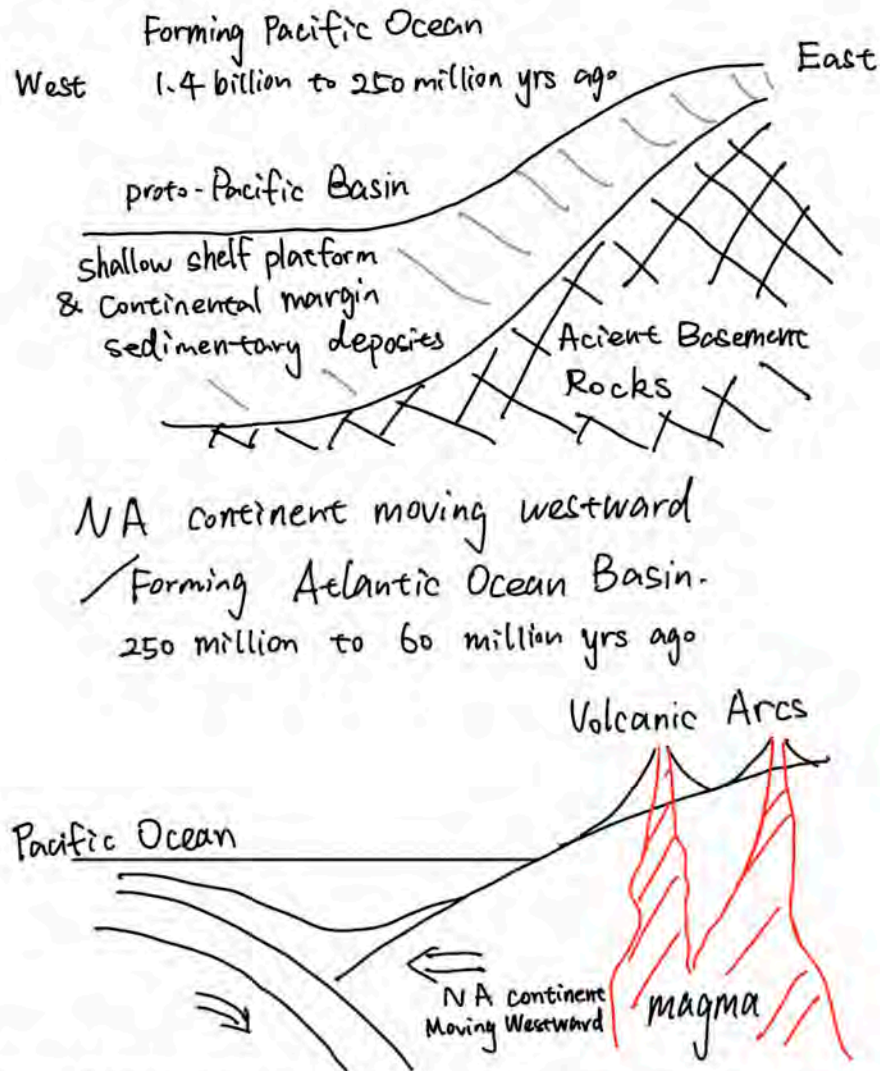 Forming Pacific Ocean
West 1.4 billion to 250 million yrs ago East
proto-Pacific Basin
shallow shelf platform
& continental margin
sedimentary deposits
Acient Basement
Rocks
NA continent moving westward
/Forming Atlantic Ocean Basin.
250 million to 60 million yrs ago
Volcanic Arcs
Pacific Ocean
NA continent
Moving Westward
magma